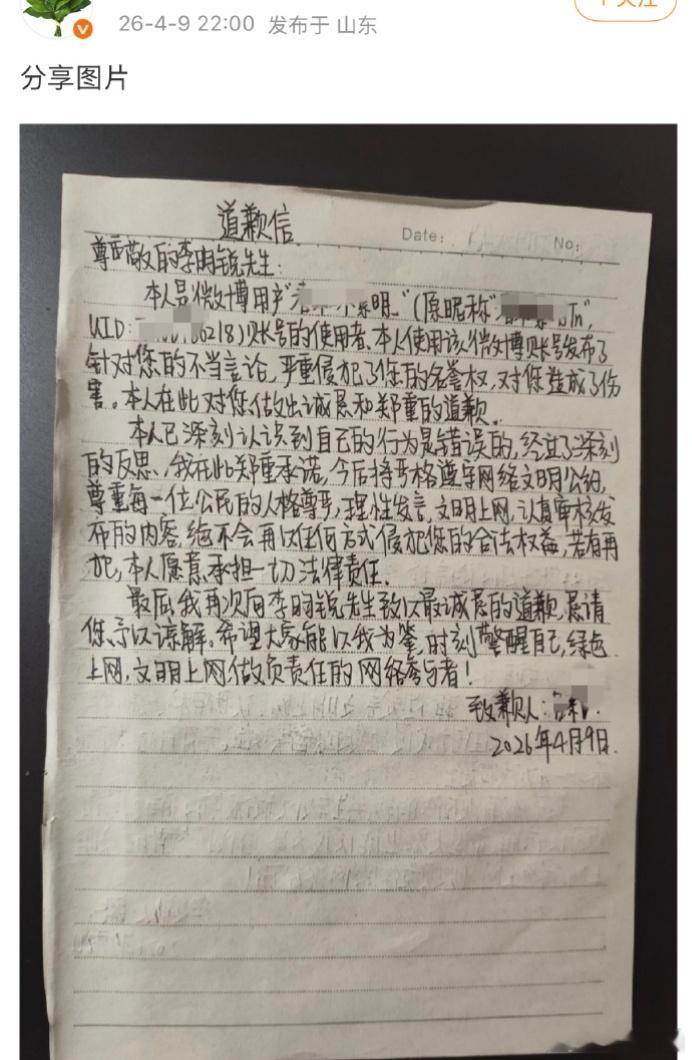 26-4-9 22:00 发布于 山东
分享图片
道歉信
Date:
No:
尊敬的李昀锐先生:
本人是微博用户"
明"(原昵称"
Tn",
UID:
6218)账号的使用者、本人使用该微博账号发布了
针对您的不当言论,严重侵犯了您的名誉权,对您造成了伤
害。本人在此对您做出诚恳和郑重的道歉.
本人已深刻认识到自己的行为是错误的,经过了深刻
的反思,我在此郑重承诺,今后将严格遵守网络文明公约,
尊重每一位公民的人格尊严,理性发言,文明上网,认真审核发
布的内容,绝不会再以任何方式侵犯您的合法权益,若有再
犯,本人愿意承担一切法律责任.
最后,我再次向李昀锐先生致以最诚恳的道歉,恳请
您予以谅解。希望大家能以我为鉴,时刻警醒自己,绿色
上网,文明上网,做负责任的网络参与者!
致歉人:
2026年4月9日.